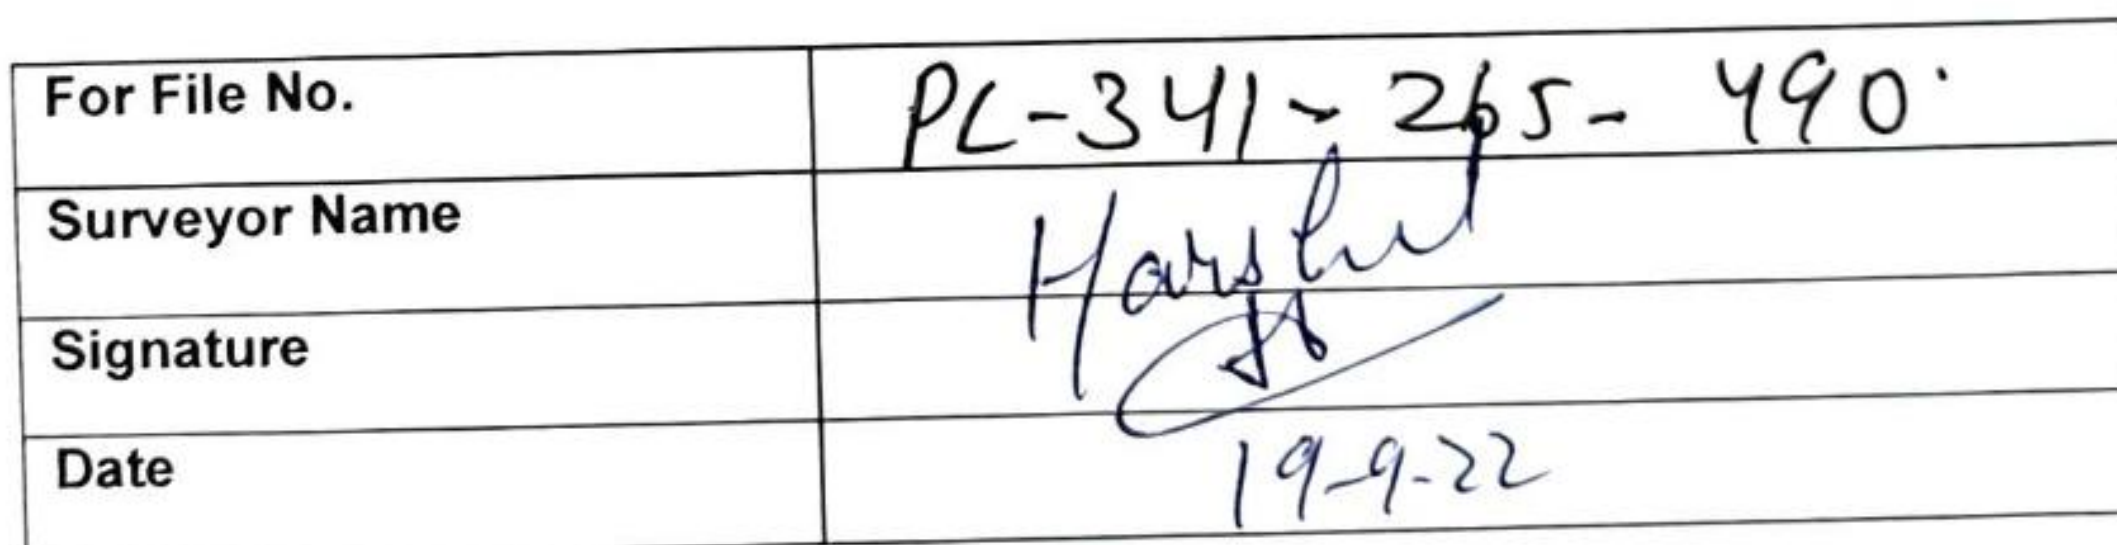 For File No. PL-341-265-490
Surveyor Name Harshit
Signature
Date 19-9-22